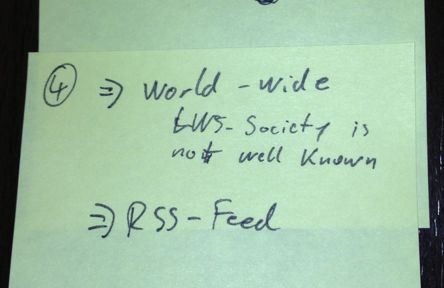 ④ ⇒ World-wide
LWS-Society is
not well known
⇒ RSS-Feed